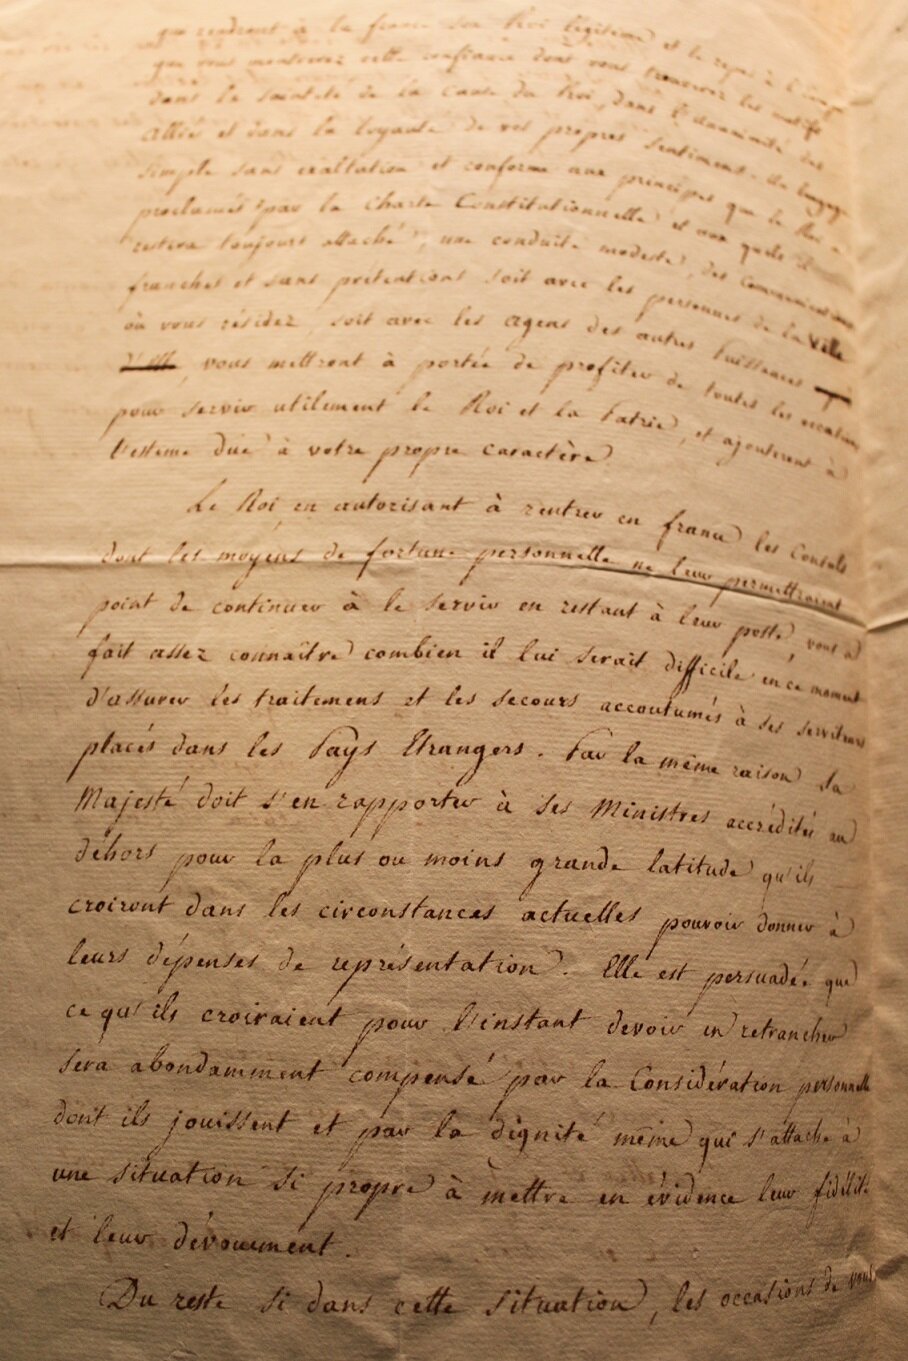 qui rendront à la france son Roi légitime et le repos à l'Europe
que vous montrerez cette confiance dont vous trouverez les motifs
dans la sainteté de la cause du Roi, dans l'unanimité des
Alliés et dans la loyauté de vos propres sentimens. Un langage
simple sans exaltation et conforme aux principes que le Roi a
proclamés par la Charte Constitutionnelle et aux quels il
restera toujours attaché, une conduite modeste, des Communications
franches et sans prétentions soit avec les personnes de la Ville
où vous résidez, soit avec les agens des autres Puissances
vous mettront à portée de profiter de toutes les occasions
pour servir utilement le Roi et la Patrie, et ajouteront à
l'estime due à votre propre caractère
Le Roi en autorisant à rentrer en france les Consuls
dont les moyens de fortune personnelle ne leur permettraient
point de continuer à le servir en restant à leur poste, vous a
fait assez connaître combien il lui serait difficile en ce moment
d'assurer les traitemens et les secours accoutumés à ses serviteurs
placés dans les Pays Etrangers. Par la même raison Sa
Majesté doit s'en rapporter à Ses Ministres accrédités au
déhors pour la plus ou moins grande latitude qu'ils
croiront dans les circonstances actuelles pouvoir donner à
leurs dépenses de représentation. Elle est persuadée que
ce qu'ils croiraient pour l'instant devoir en retrancher
sera abondamment compensé par la Considération personnelle
dont ils jouissent et par la dignité même qui s'attache à
une situation si propre à mettre en évidence leur fidélité
et leur dévouement.
Du reste si dans cette situation, les occasions de vous